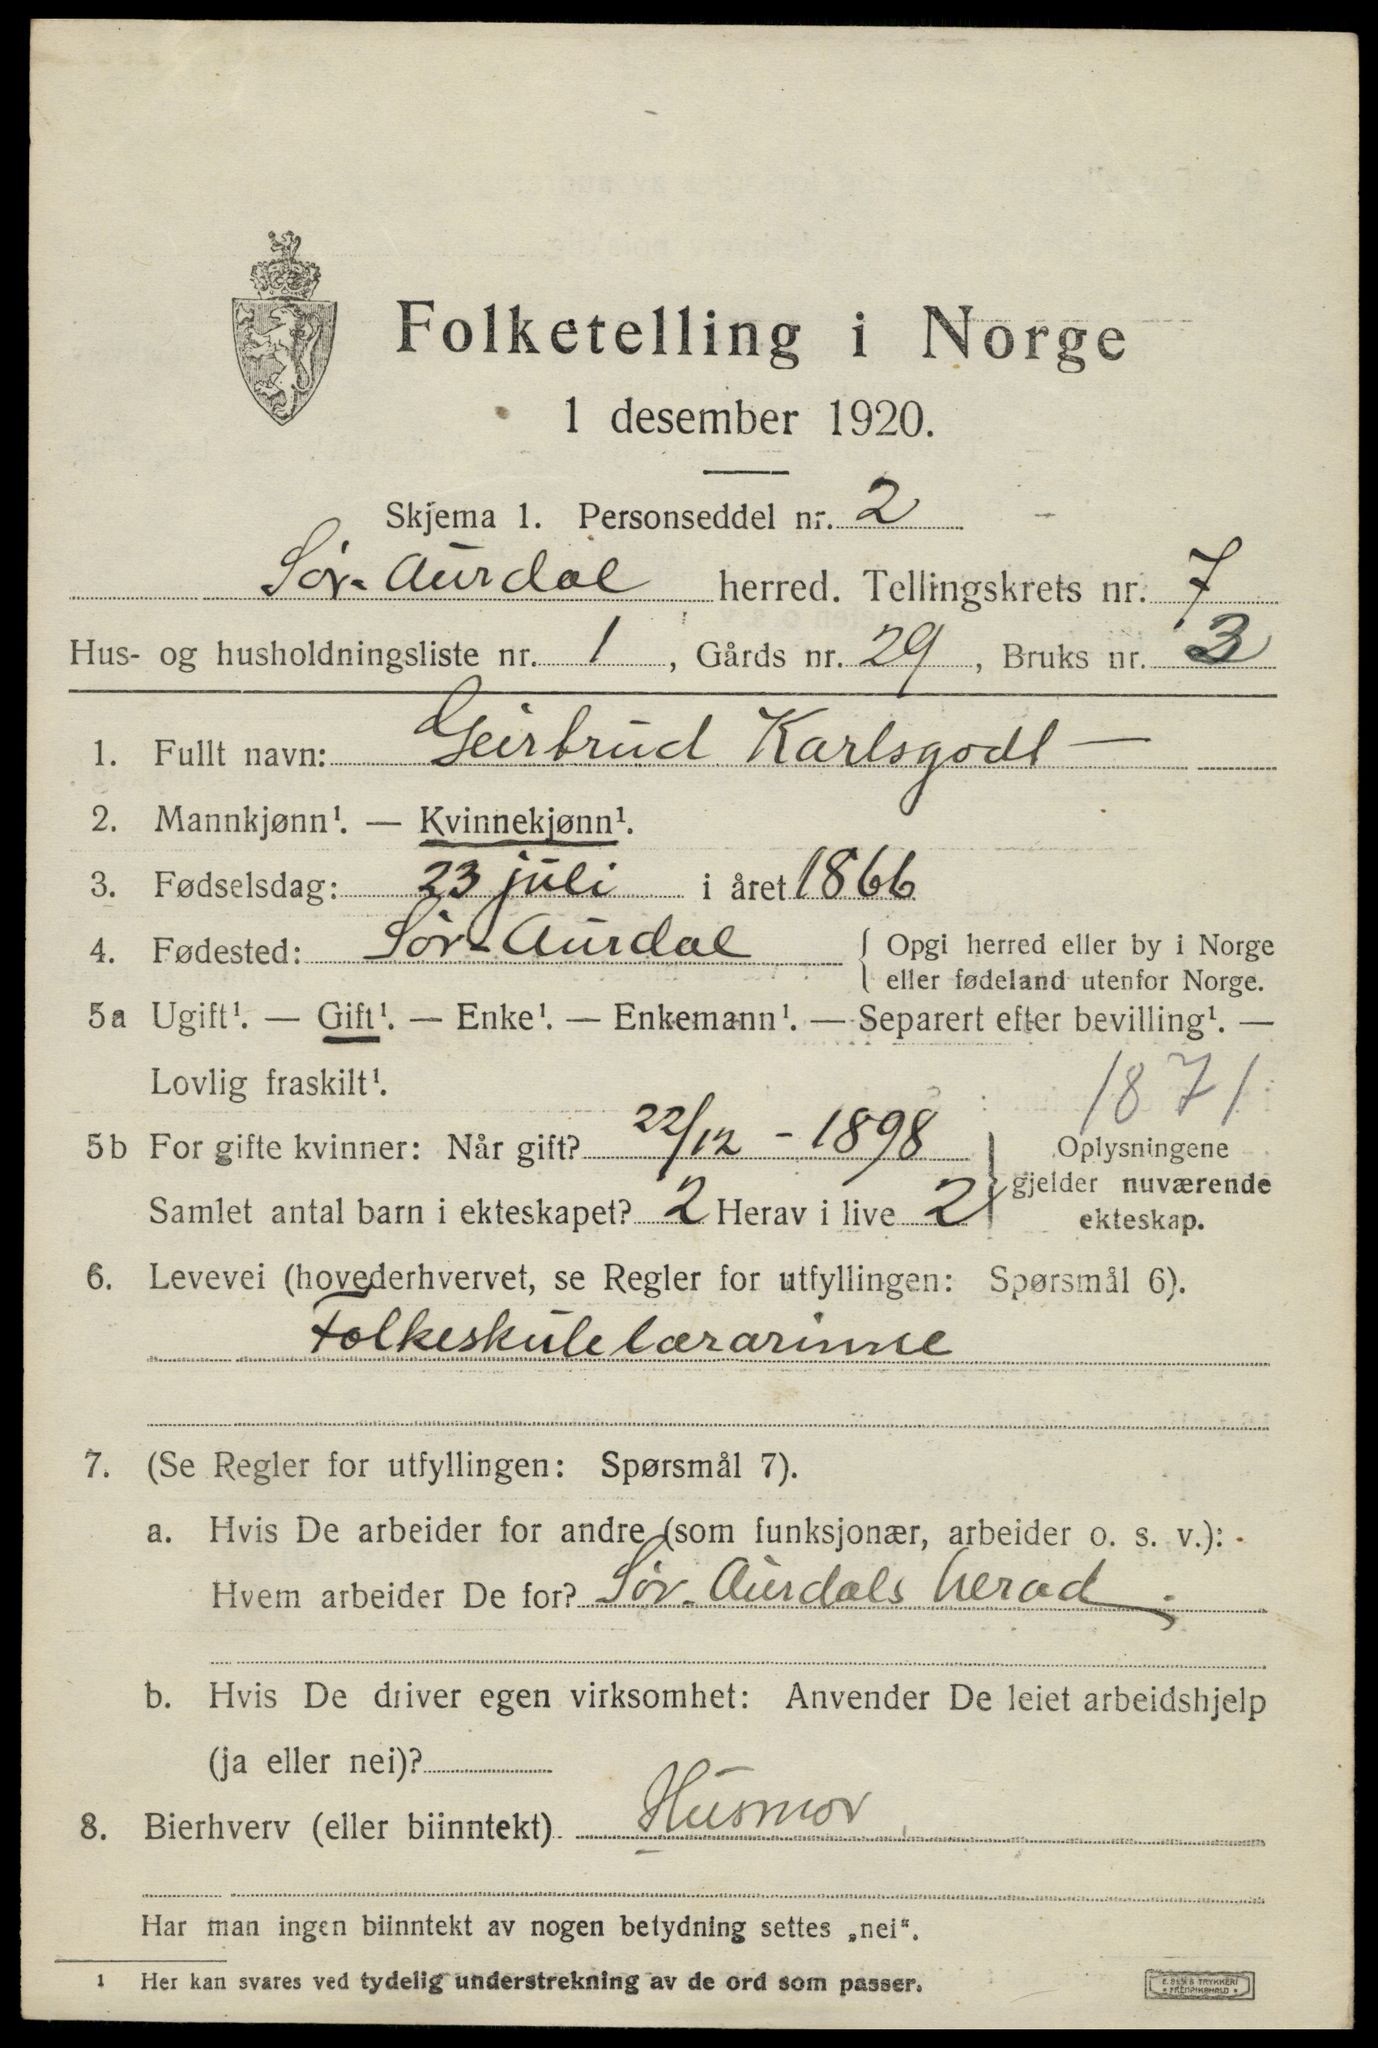 Folketelling i Norge
1 desember 1920.
Skjema 1. Personseddel nr. 2
Sør-Aurdal herred. Tellingskrets nr. 7
Hus- og husholdningsliste nr. 1, Gårds nr. 29, Bruks nr. 3
1. Fullt navn: Geirbrud Karlsgodt —
2. Mannkjønn¹. — Kvinnekjønn¹.
3. Fødselsdag: 23 juli i året 1866
4. Fødested: Sør-Aurdal { Opgi herred eller by i Norge
eller fødeland utenfor Norge.
5a Ugift¹. — Gift¹. — Enke¹. — Enkemann¹. — Separert efter bevilling¹. —
Lovlig fraskilt¹.
1871
5b For gifte kvinner: Når gift? 22/12 - 1898
Samlet antal barn i ekteskapet? 2 Herav i live 2
} Oplysningene
gjelder nuværende
ekteskap.
6. Levevei (hovederhvervet, se Regler for utfyllingen: Spørsmål 6).
Folkeskulelærarinne
7. (Se Regler for utfyllingen: Spørsmål 7).
a. Hvis De arbeider for andre (som funksjonær, arbeider o. s. v.):
Hvem arbeider De for? Sør-Aurdals herad.
b. Hvis De driver egen virksomhet: Anvender De leiet arbeidshjelp
(ja eller nei)?
8. Bierhverv (eller biinntekt) Husmor
Har man ingen biinntekt av nogen betydning settes „nei“.
1 Her kan svares ved tydelig understrekning av de ord som passer.
E. SEM'S TRYKKERI
FREDRIKSHALD